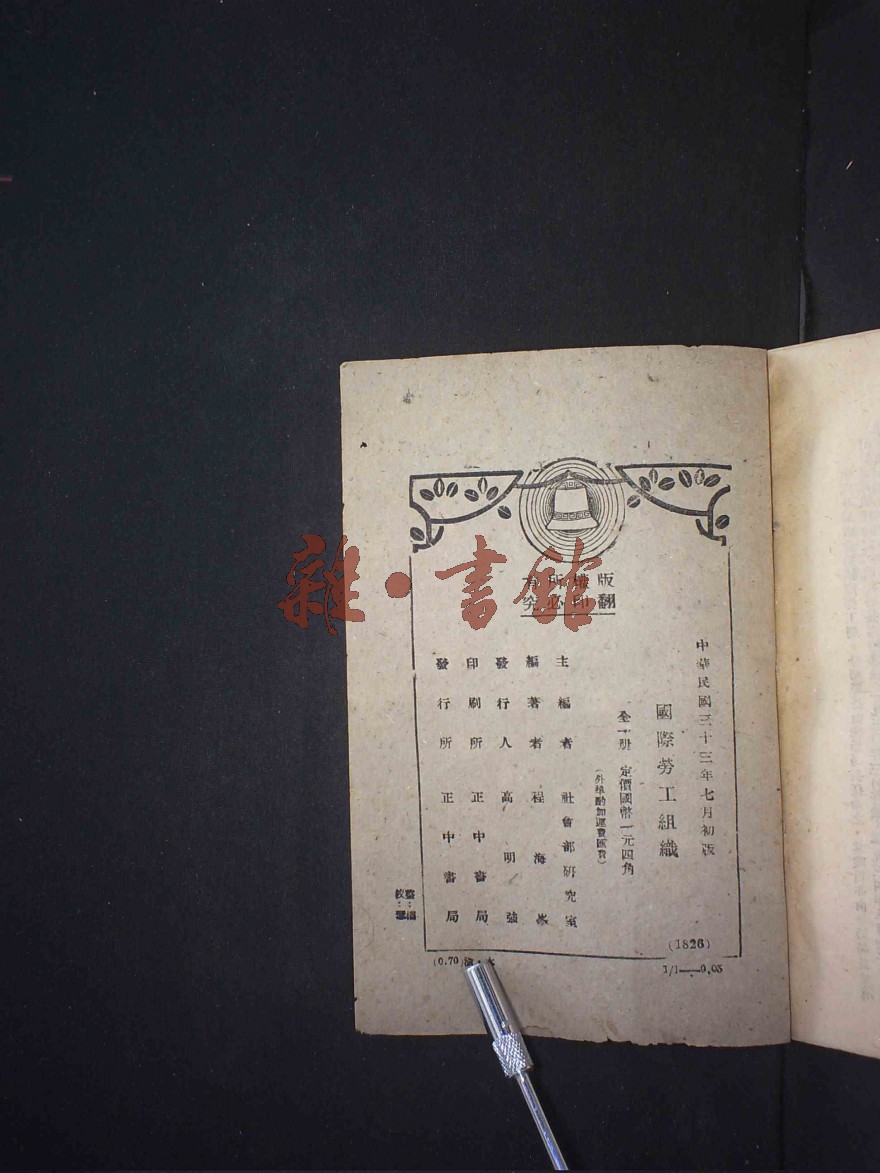 雜·書館
版權所有
翻印必究
中華民國三十三年七月初版
國際勞工組織
全一册 定價國幣一元四角
(外埠酌加運費匯費)
主編者 社會部研究室
編著者 程海峯
發行人 高明強
印刷所 正中書局
發行所 正中書局
(1826)
(0.70)
1/1——0.05